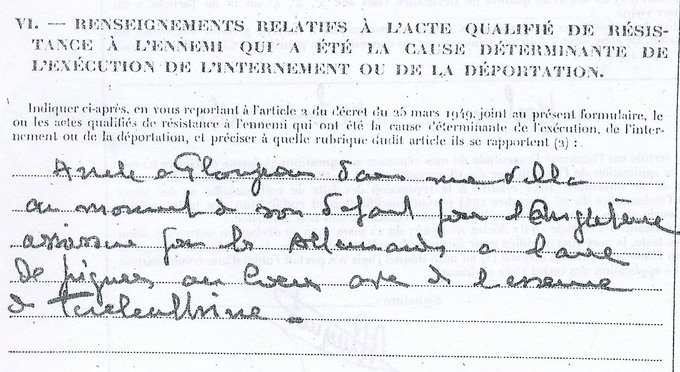 VI. — RENSEIGNEMENTS RELATIFS À L'ACTE QUALIFIÉ DE RÉSIS-
TANCE À L'ENNEMI QUI A ÉTÉ LA CAUSE DÉTERMINANTE DE
L'EXÉCUTION DE L'INTERNEMENT OU DE LA DÉPORTATION.
Indiquer ci-après, en vous reportant à l'article 2 du décret du 25 mars 1949, joint au présent formulaire, le
ou les actes qualifiés de résistance à l'ennemi qui ont été la cause déterminante de l'exécution, de l'inter-
nement ou de la déportation, et préciser à quelle rubrique dudit article ils se rapportent (2) :
a dans une villa
au moment de son départ pour l'Angleterre
assassiné par les Allemands a l'aide
de piqures au coeur avec de l'essence
de terebenthine.